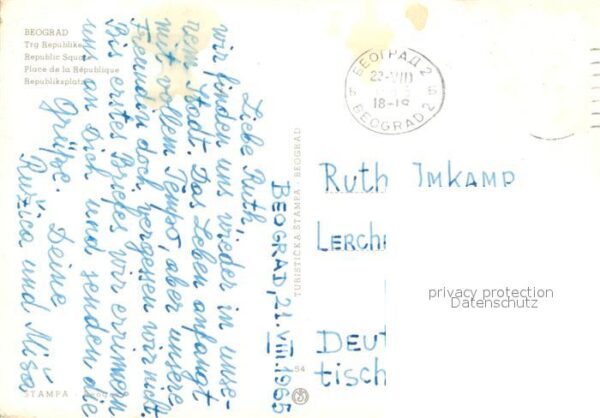 BEOGRAD
Trg Republike
Republic Square
Place de la République
Republiksplatz
BEOGRAD, 21. VIII. 1965
Liebe Ruth,
wir finden uns wieder in unse-
rem Stadt. Das Leben anfangt
mit vollem Tempo, aber unsere
Freundin doch vergessen wir nicht.
Bis erstes Briefes wir errinnern
uns an Dich und senden die
Grüße. Deine
Ružica und Miša
STAMPA
TURISTIČKA ŠTAMPA - BEOGRAD
54
БЕОГРАД 2
22-VIII
Б Б
18-19
BEOGRAD 2
Ruth Imkamp
Lerch
Deut
tisch
privacy protection
Datenschutz